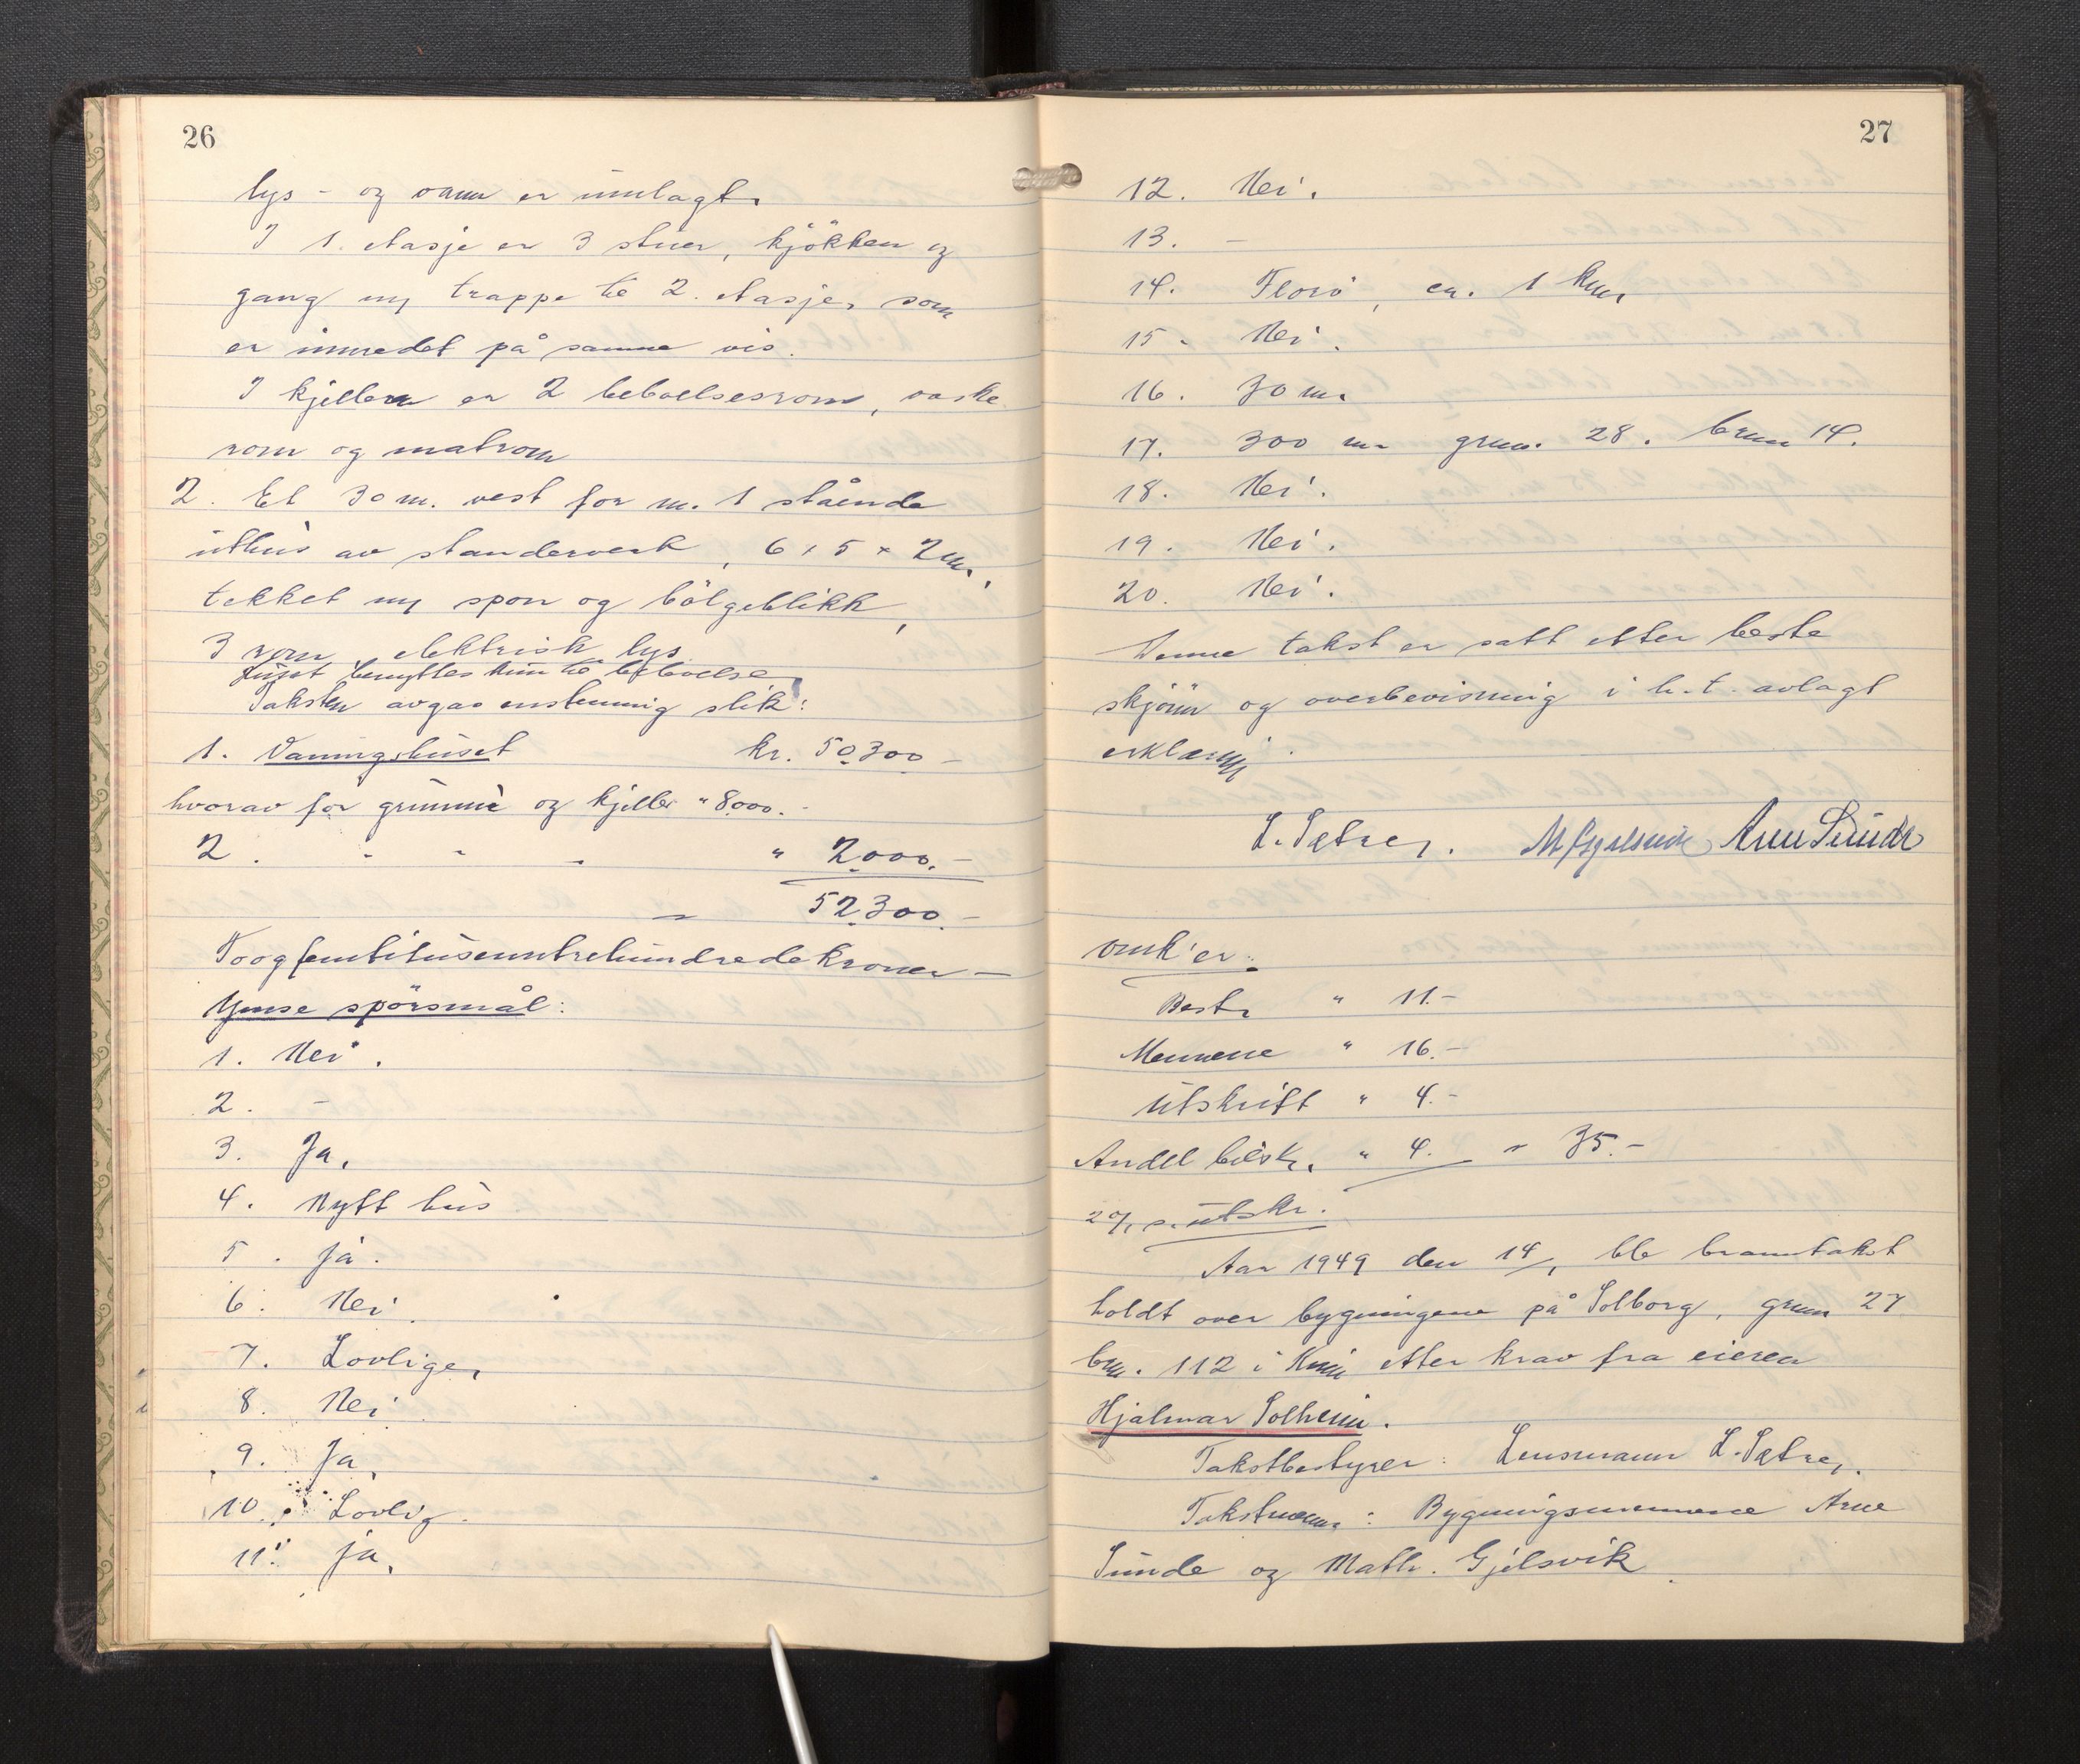 26
lys - og vann er innlagt.
I 1. etasje er 3 stuer, kjökken og
gang m/ trappe til 2. etasje, som
er innredet på samme vis.
I kjelleren er 2 beboelsesrom, vaske
rom og matrom
2. Et 30 m. vest for nr. 1 stående
uthus av standerverk, 6 x 5 x 2 m.,
tekket m/ spon og bölgeblikk,
3 rom elektrisk lys
Huset benyttes kun til beboelse
Taksten avgas enstemmig slik:
1. Vaningshuset kr. 50.300 -
hvorav for grunnmur og kjeller " 8000. -
2. - - - " 2000. -
" 52.300. -
Toogfemtitusenntrehundredekroner -
Ymse spörsmål:
1. Nei.
2. -
3. Ja.
4. Nytt hus
5. ja.
6. Nei.
7. Lovlige.
8. Nei.
9. Ja.
10. Lovlig.
11. ja.
27
12. Nei.
13. -
14. Florö, ca. 1 km.
15. Nei.
16. 30 m.
17. 300 m. gnr. 28. bnr 14.
18. Nei.
19. Nei.
20. Nei.
Denne takst er satt etter beste
skjönn og overbevisning i h.t. avlagt
erklæring.
L. Sætre. M Gjelsvik Arne Sunde
omk'er:
Best. " 11.-
Mennene " 16.-
Utskrift " 4.-
Andel bilsk. " 4. " 35.-
utskr.
Aar 1949 den 14/1 ble branntakst
holdt over bygningene på Solborg, gnr 27
bnr. 112 i Kinn etter krav fra eieren
Hjalmar Solheim.
Takstbestyrer: Lensmann L. Sætre.
Takstmenn: Bygningsmennene Arne
Sunde og Math. Gjelsvik